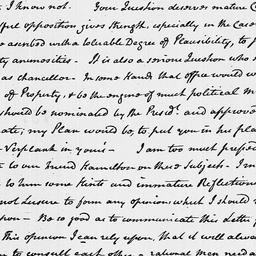 I know not. Your Question deserves mature C
ful opposition gives strength, especially in the Case
be ascribed with a tolerable Degree of Plausibility, to
ty animosities - It is also a serious Question who
as chancellor. In some Hands that office would w
of Property, & be the engine of much political M
should be nominated by the Presdt. and approved
ate; my Plan would be, to put you in his pla
- Verplank in yours - I am too much pressed
to our Friend Hamilton on these Subjects. I m
to him some Hints and immature Reflections
not Leisure to form any opinion which I should
upon - Be so good as to communicate this Letter
This opinion I can rely upon, that it will alwa
to consult each other &amp; rational men need a